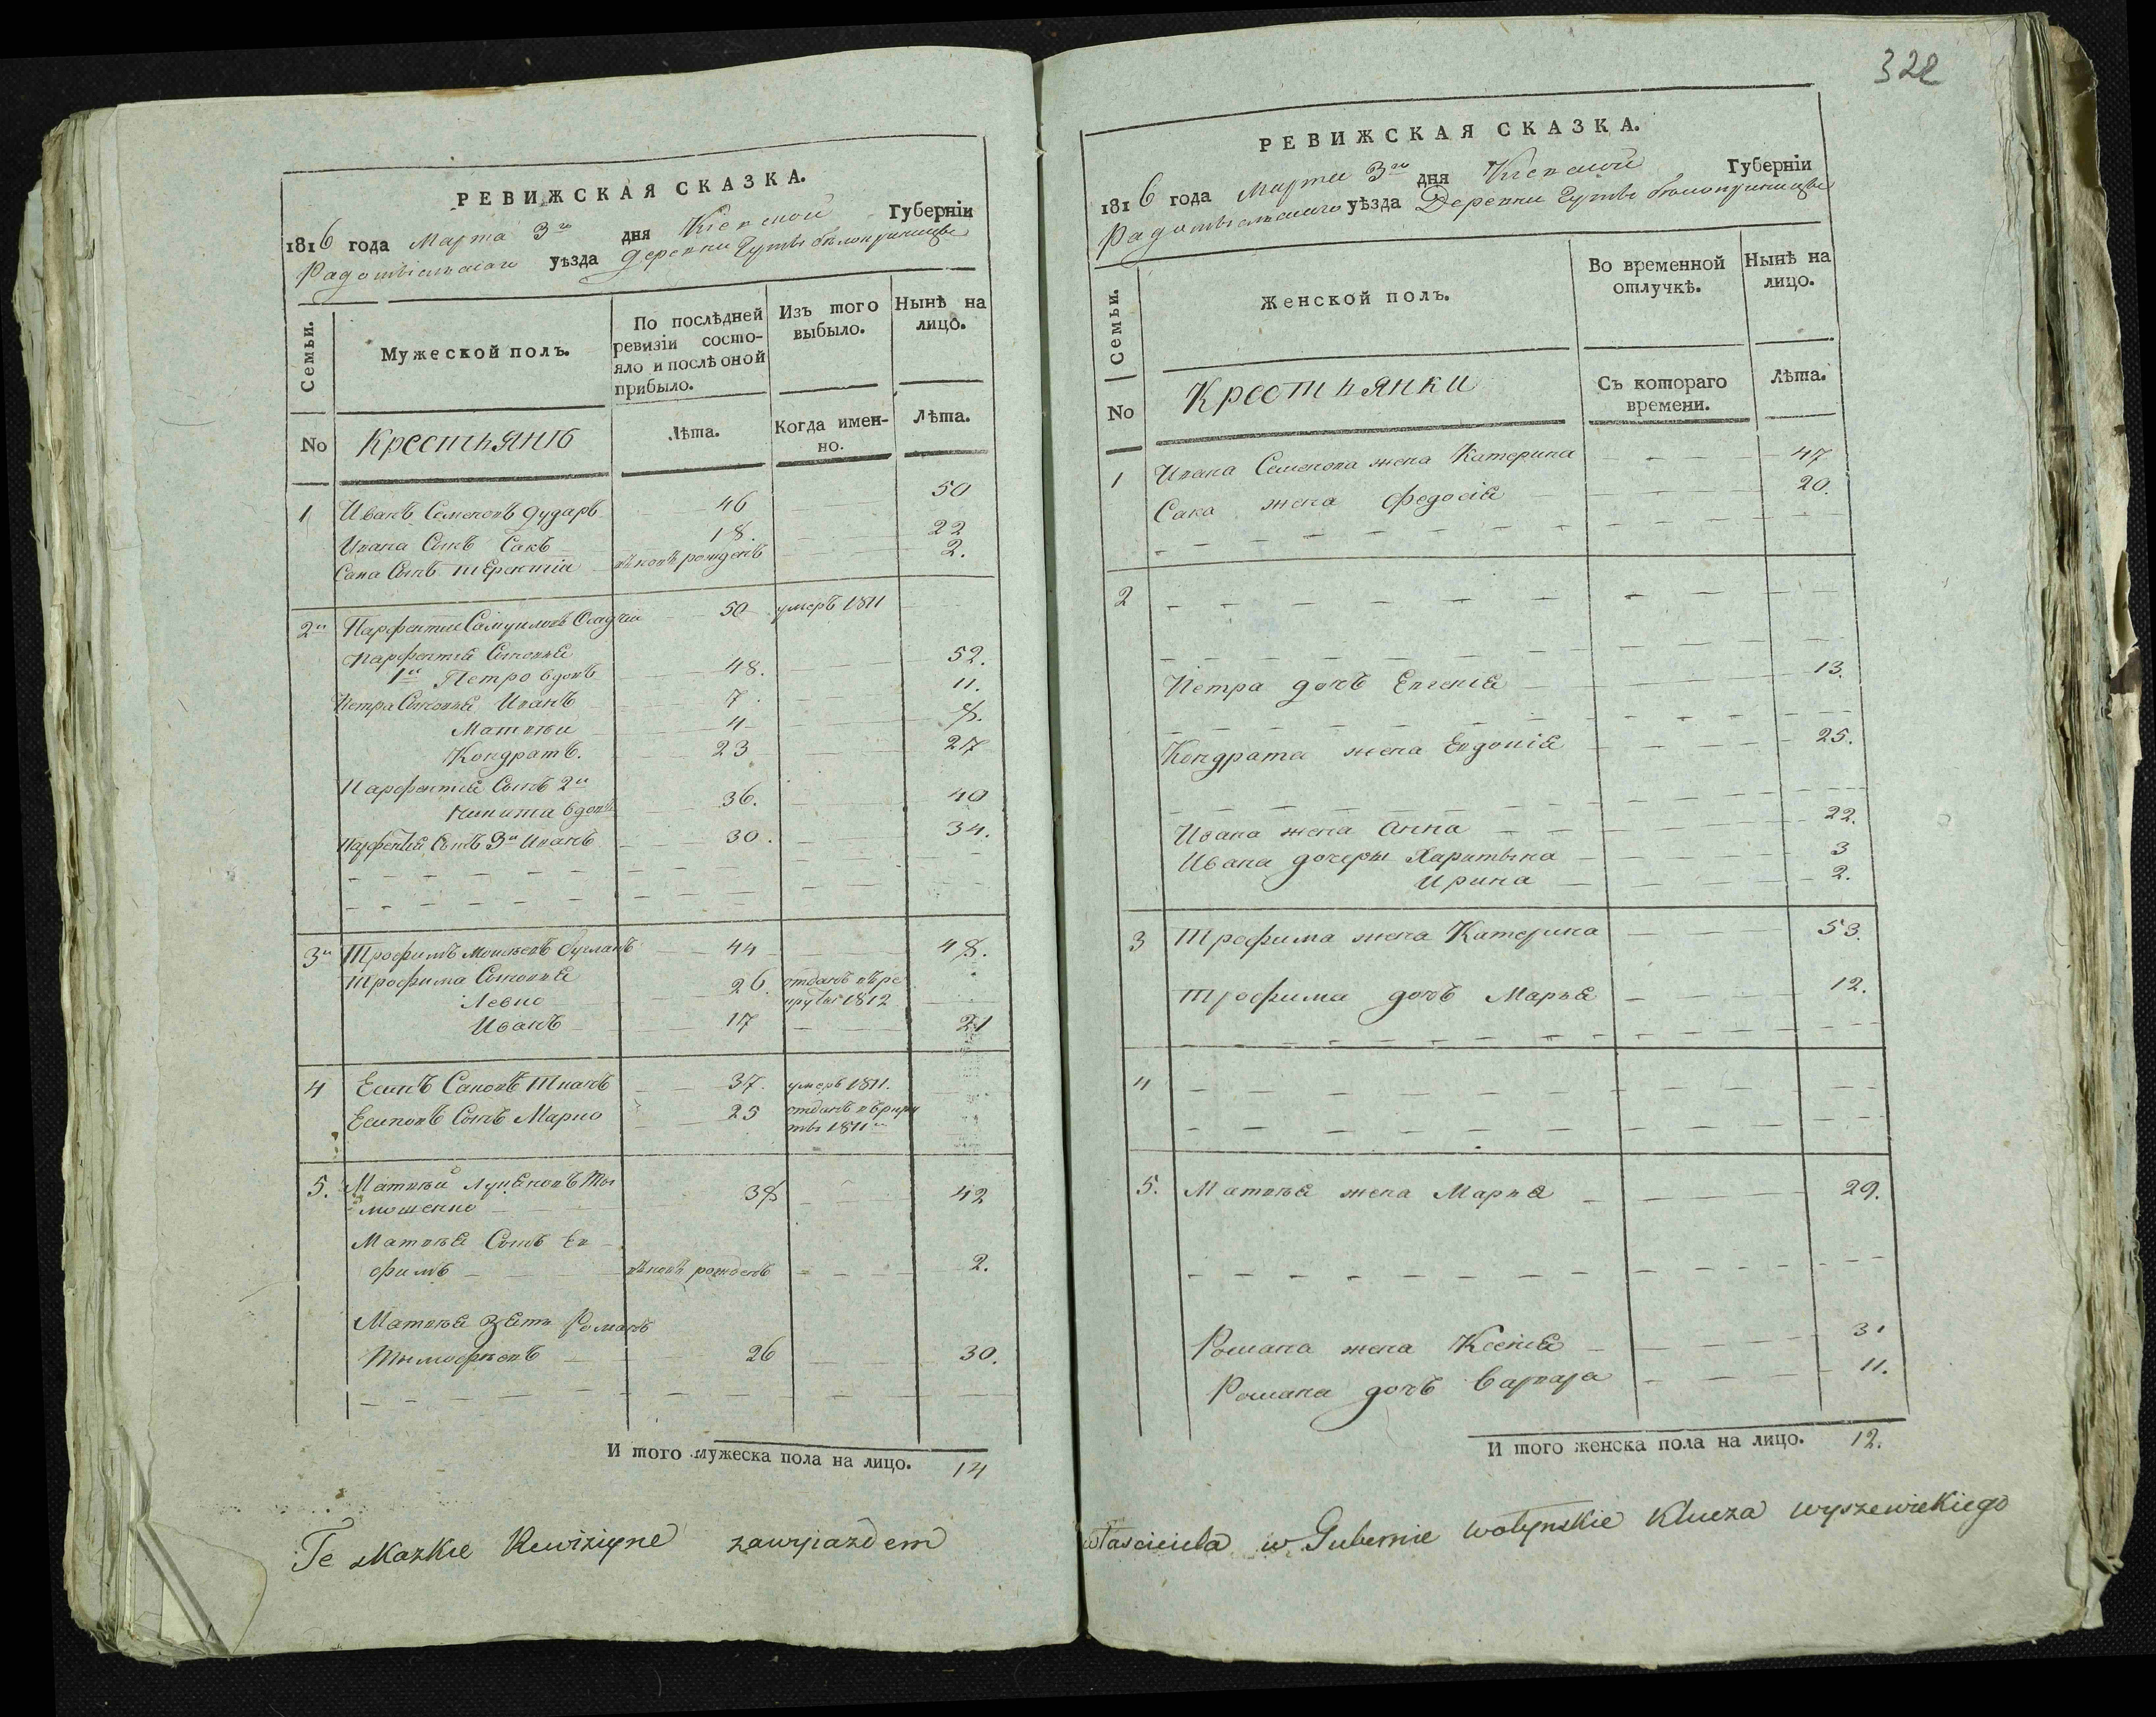 РЕВИЖСКАЯ СКАЗКА.
1816 года Марта 3го дня Кіевской Губерніи
Радомысльскаго уѣзда деревни Гуты
Семьи.
Мужеской полъ.
По послѣдней ревизіи состо-
яло и послѣ оной
прибыло.
Изъ того
выбыло.
Нынѣ на
лицо.
No
Крестьянъ
Лѣта.
Когда имен-
но.
Лѣта.
1 Иванъ Семеновъ Дударъ 46 50
Ивана Сынъ Сакъ 18. 22
Сака Сынъ Терентій рожденъ 2.
2й Парфентій Самуиловъ Осадчій 50 умеръ 1811
Парфентія Сыновья
1й Петро вдовъ 48. 52.
Петра Сыновья Иванъ 7. 11.
Матвѣй 4 8.
Кондратъ. 23 27
Парфентія Сынъ 2й
Никита вдовъ 36. 40
Парфентія Сынъ 3й Иванъ 30. 34.
3й Трофимъ 44 48.
Трофима Сыновья
Левко 26. отданъ въ ре
круты 1812
Иванъ 17 21
4 Есипъ Саковъ Ткачъ 37. умеръ 1811.
Есиповъ Сынъ Марко 25 отданъ въ рекру
ты 1811
5. Матвѣй Луцяновъ Ты
мошенко 38 42
Матвѣя Сынъ Ев
фимъ рожденъ 2.
Матвѣя зять Романъ
Тымофѣевъ 26 30.
И того мужеска пола на лицо. 14
Te skazkie Rewiziyne zawyiazdem
322
РЕВИЖСКАЯ СКАЗКА.
1816 года Марта 3го дня Кіевской Губерніи
Радомысльскаго уѣзда Деревни Гуты
Семьи.
Женской полъ.
Во временной
отлучкѣ.
Нынѣ на
лицо.
No
Крестьянки
Съ котораго
времени.
Лѣта.
1 Ивана Семенова жена Катерина 47
Сака жена Федосія 20.
2
Петра дочь Евгенія 13.
Кондрата жена Евдокія 25.
Ивана жена Анна 22.
Ивана дочеры Харитына 3
Ирина 2.
3 Трофима жена Катерина 53.
Трофима дочь Марья 12.
4
5. Матвѣя жена Марія 29.
Романа жена Ксенія 31
Романа дочь Варвара 11.
И того женска пола на лицо. 12.
własciciela w Gubernie wołynskie Klucza wyszewickiego